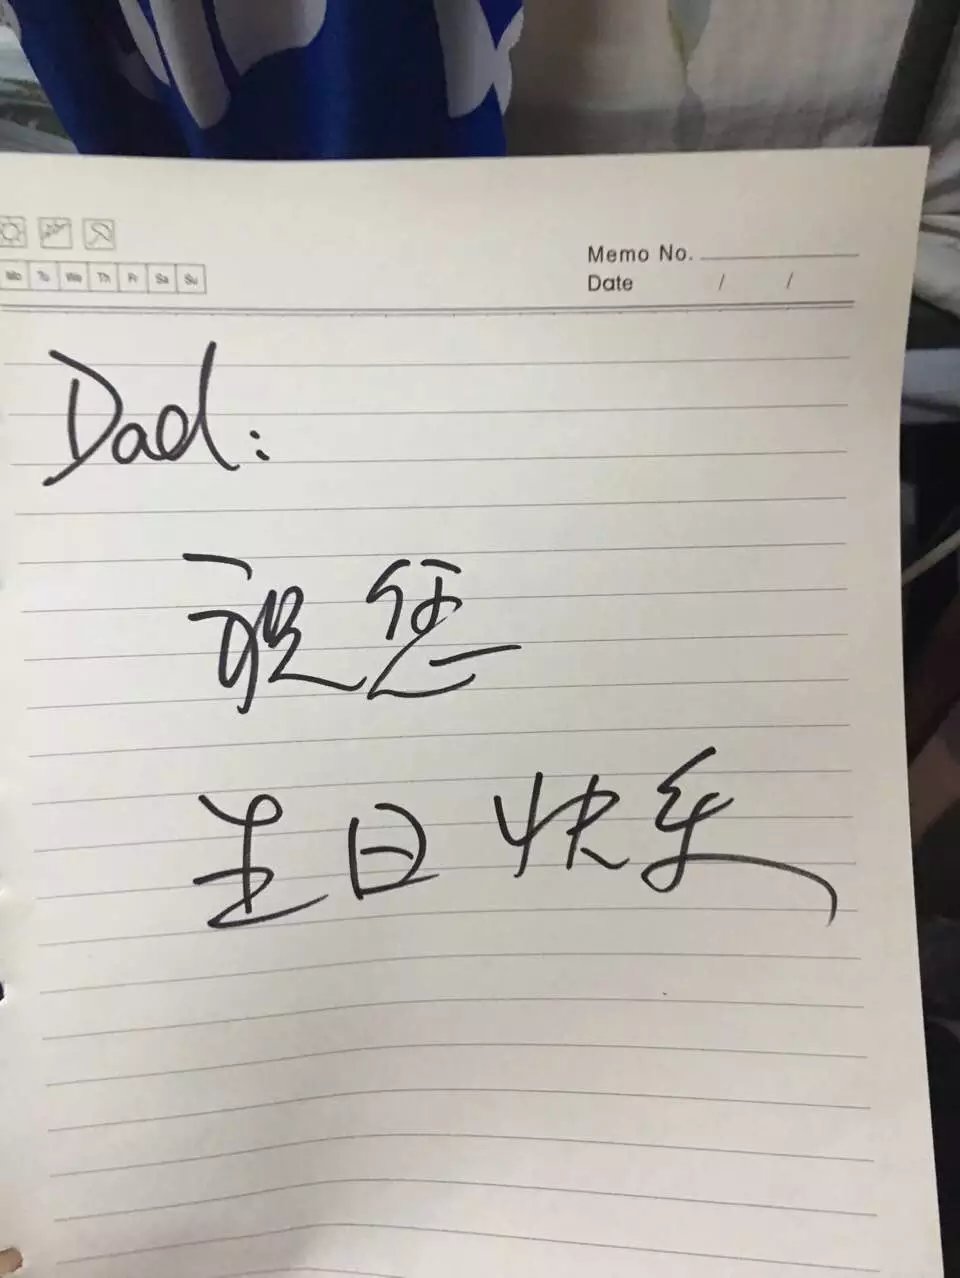 Mo Tu We Th Fr Sa Su
Memo No.
Date / /
Dad:
祝您
生日快乐